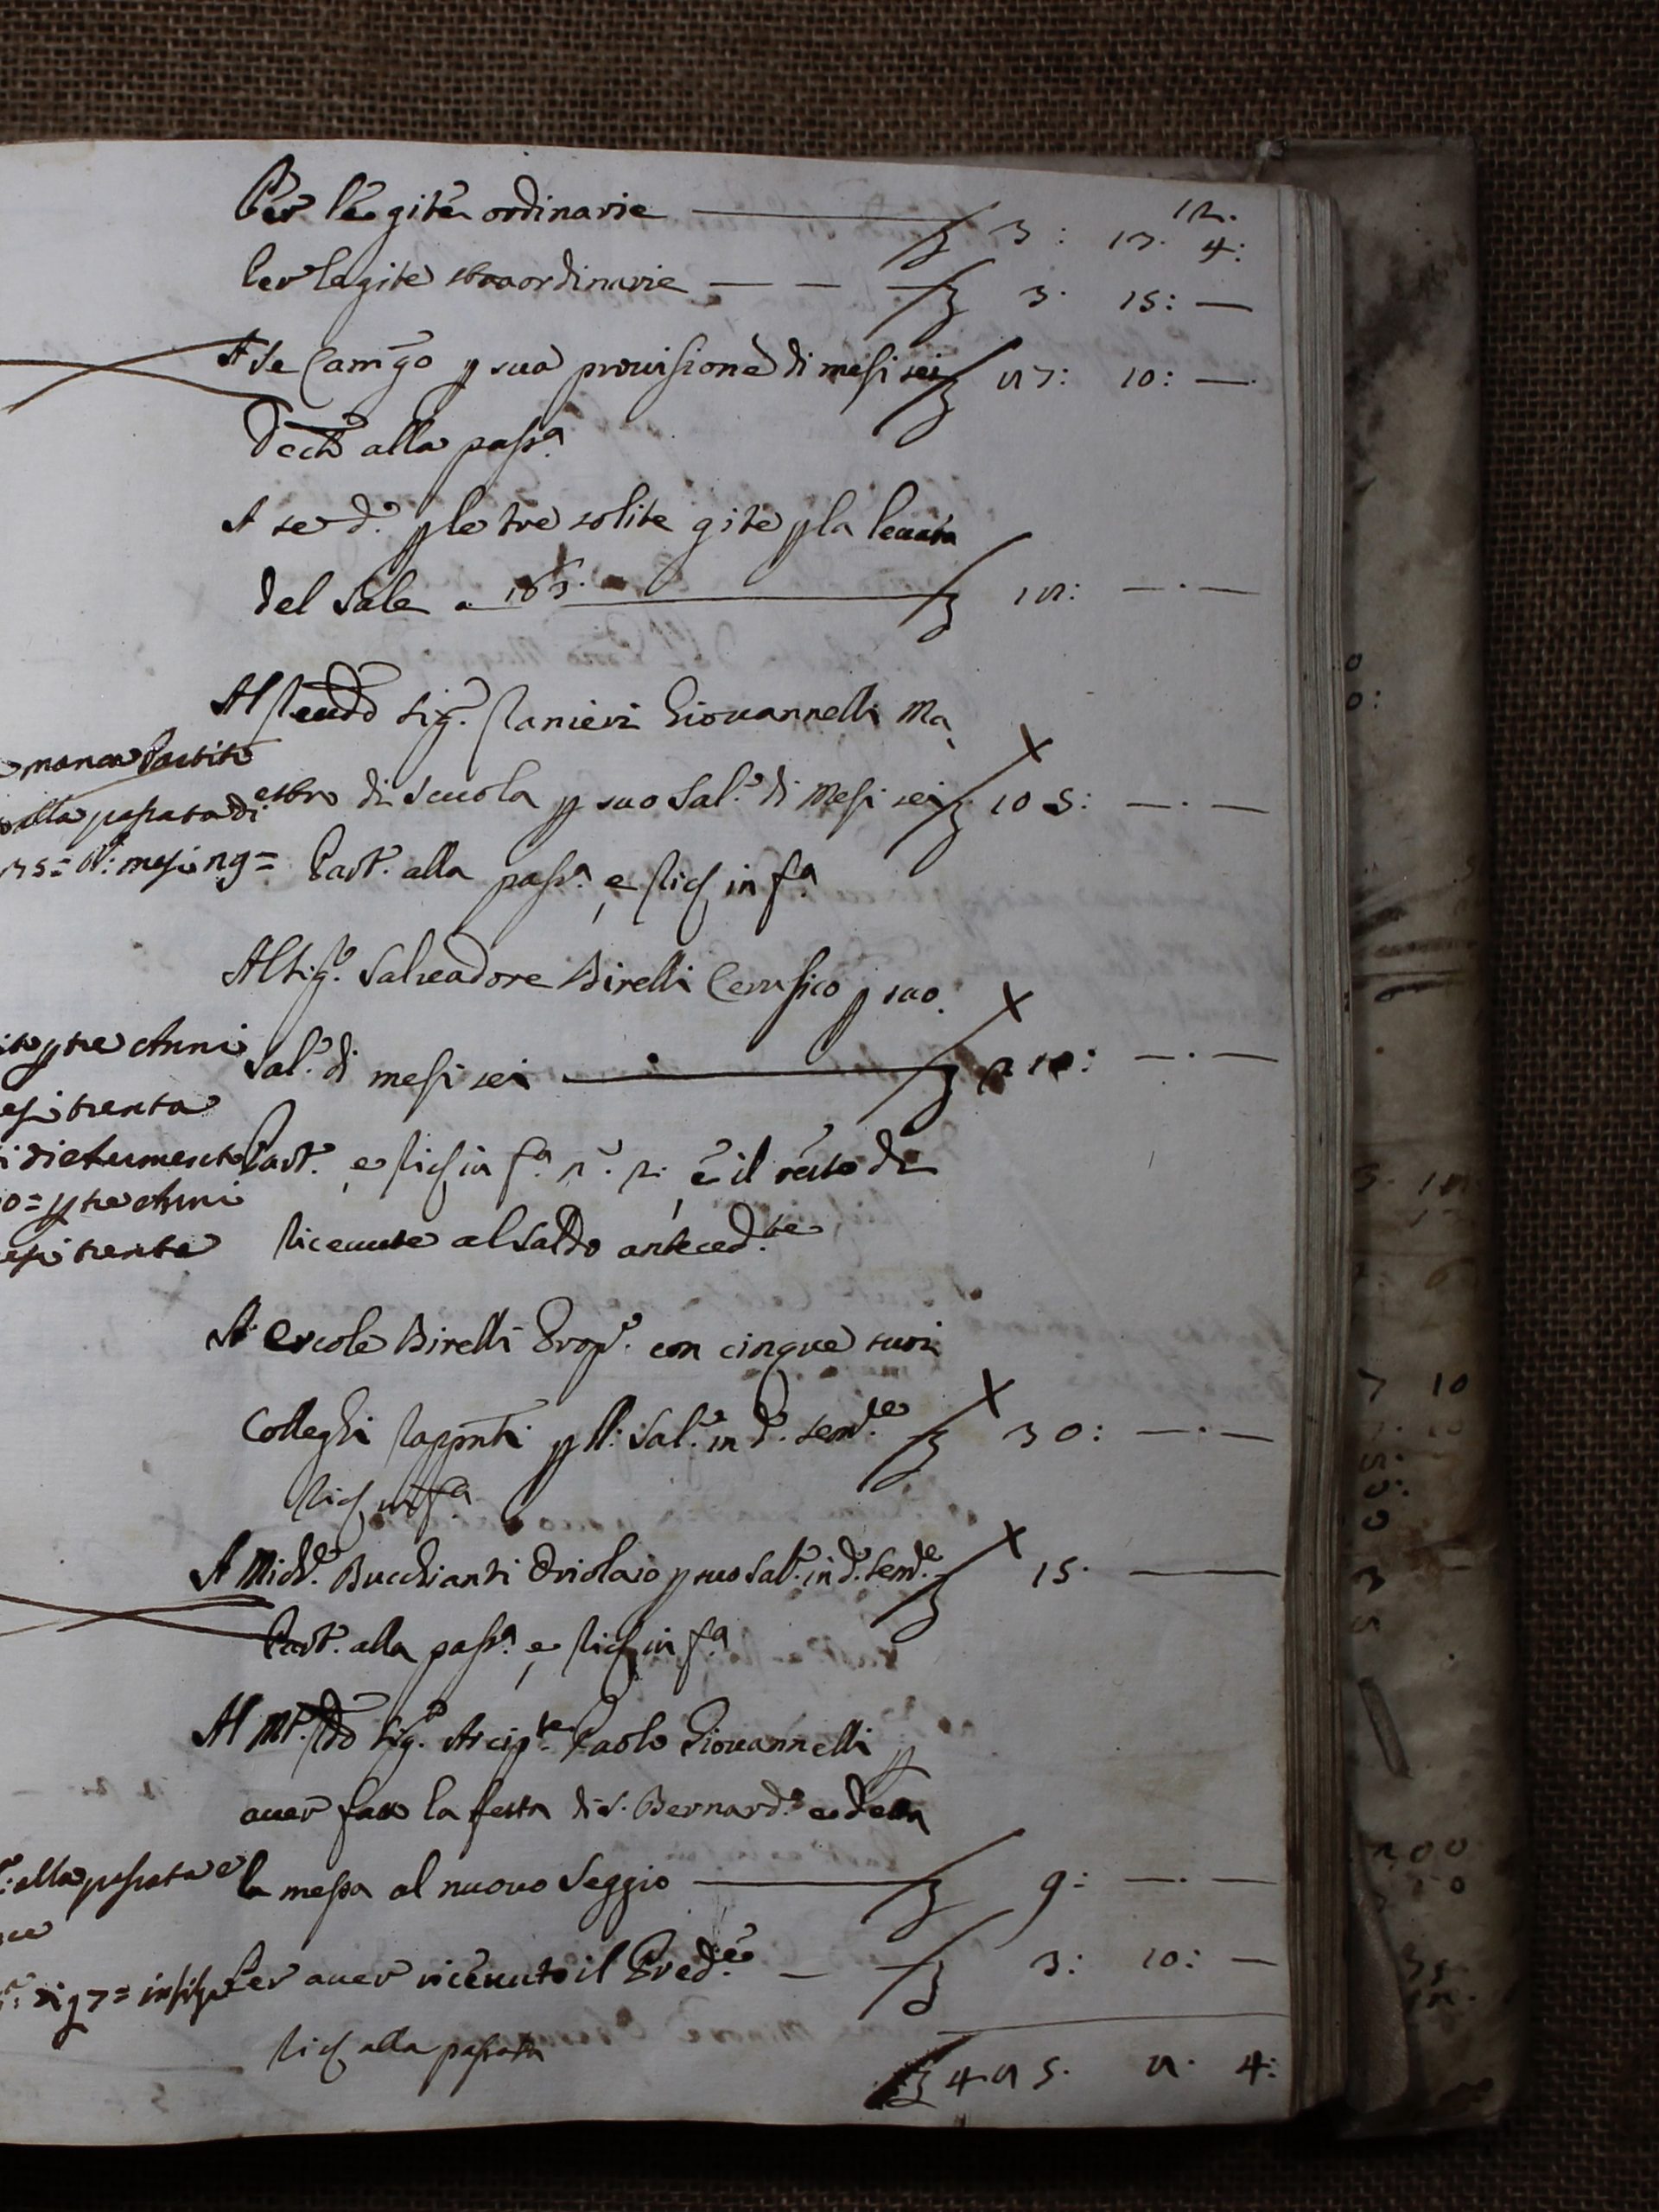 12.
Per le gite ordinarie £ 3: 13. 4:
Per le gite straordinarie £ 3. 15: —
A Se Cam.go p sua provisione di mesi sei £ 27: 10: —
Dec.to alla pass.a
A se d.o p le tre solite gite p la levata
del Sale a £ 12: —.—
Al Reud.o Sig.e Ranieri Giovannelli Ma
estro di Scuola p suo Sal.o di Mesi sei £ 105: —.—
Part.o alla pass.a e Ric in f.a
Al Sig.e Salvadore Birelli Cerusico p suo
Sal.o di mesi sei £ 210: —.—
Part.o e Ric in f.a n.o 2: e il resto di
ricevute al Saldo anteced.te
A Ercole Birelli Prop.o con cinque suoi
Colleghi Rappnti p ll: Sal.o in d.o sem.e £ 30: —.—
Ric in f.a
A Mich.e Bucchianti Oriolaio p suo Sal.o in d.o Sem.e £ 15. —
Part.o alla pass.a e Ric in f.a
Al M.to R.do Sig.e Arcip.te Paolo Giovannelli p
aver fatto la festa di S. Bernard.o e detta
la messa al nuovo Seggio £ 9: —.—
Per aver ricevuto il Pred.re — £ 3: 10: —
Ric alla passata
£ 425. 2. 4:
manca Partito
alla passata di
35= n: mesi 29=
p tre Anni
trenta
dietumento
0= p tre Anni
trenta
alla passata e